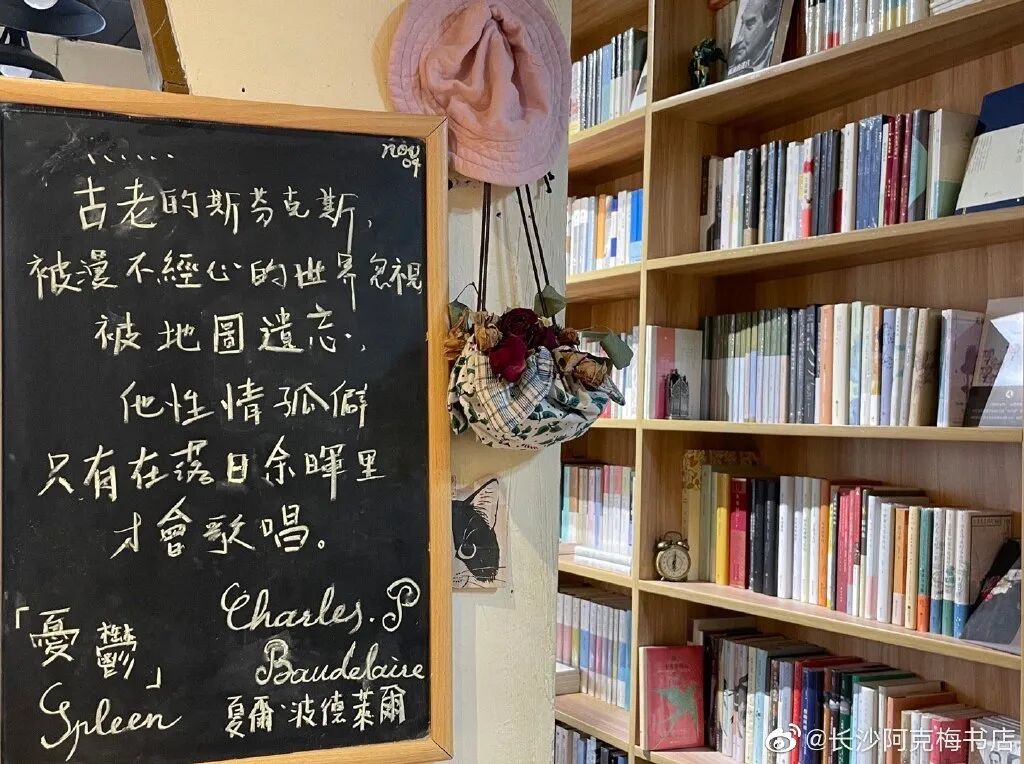 nov
04
......
古老的斯芬克斯,
被漫不經心的世界忽視
被地圖遺忘,
他性情孤僻
只有在落日余暉里
才會歌唱。
「憂鬱」
Spleen
Charles.P
Baudelaire
夏爾·波德萊爾
@长沙阿克梅书店